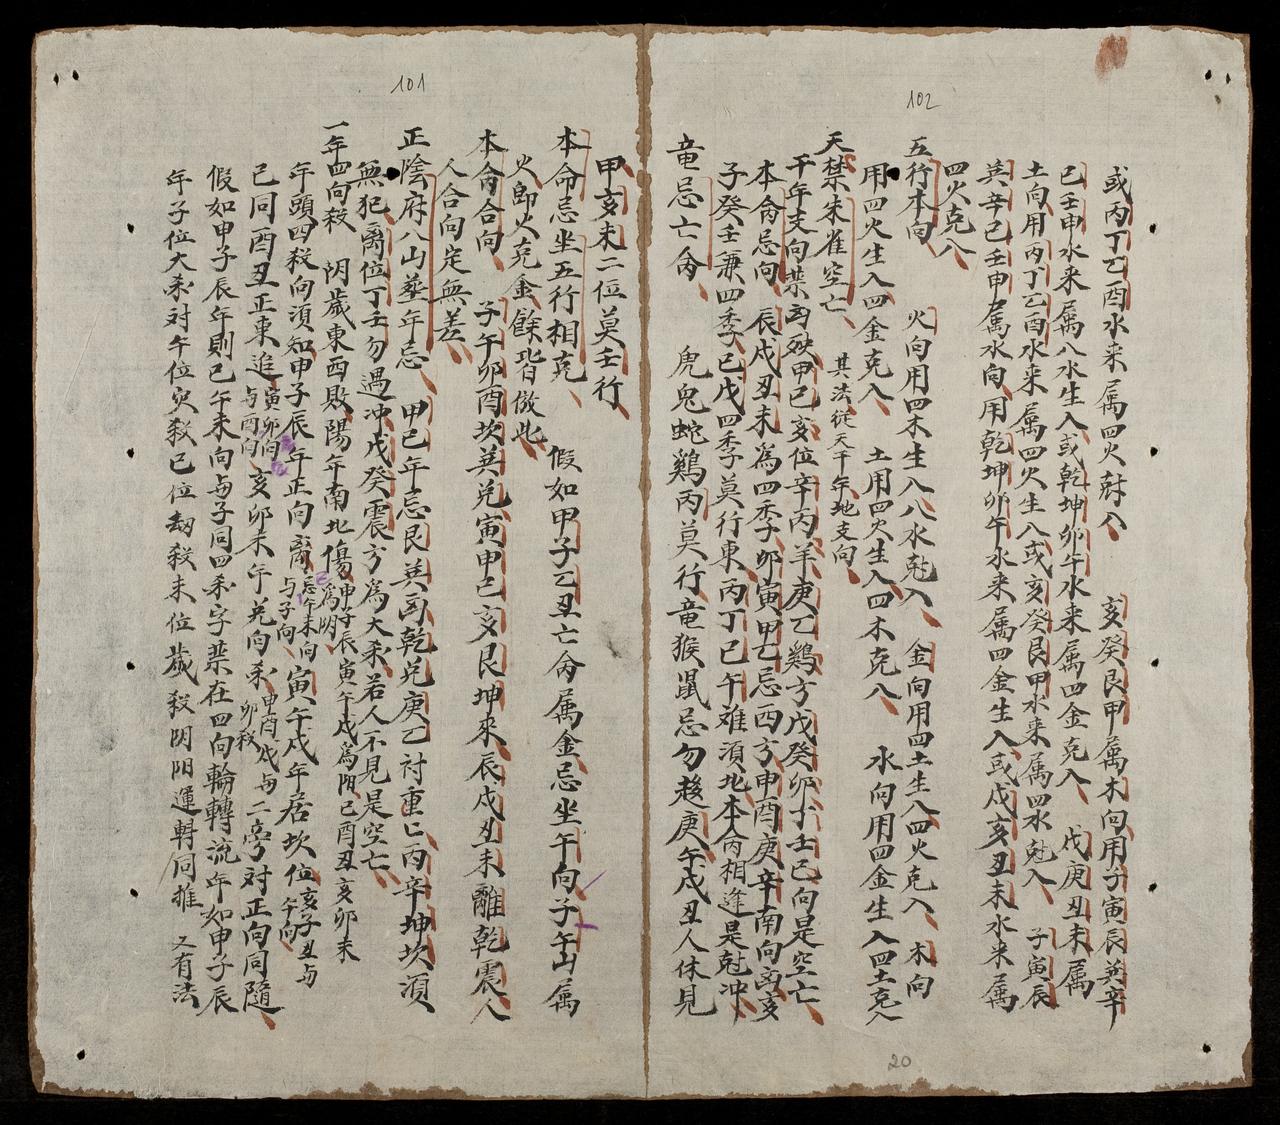 102
或丙丁乙酉水来属四火尅入 亥癸艮甲属木向用子寅辰巽辛
已壬申水来属八水生入或乾坤卯午水来属四金克入 戊庚丑未属
土向用丙丁乙酉水来属四火生入或亥癸艮甲水来属四水尅入 子寅辰
巽辛已壬申属水向用乾坤卯午水来属四金生入或戊亥丑未水来属
四火克入
五行本向 火向用四木生入八水尅入 金向用四土生入四火克入 木向
用四火生入四金克入 土用四火生入四木克入 水向用四金生入四土克入
天禁朱雀空亡 其法従天干年地支向
干年支向禁凶殃甲已亥位辛丙羊庚乙鷄方戊癸卯丁壬已向是空亡
本命忌向 辰戌丑未為四季卯寅甲乙忌西方申酉庚辛南向离亥
子癸壬兼四季已戊四季莫行東丙丁已午难湏北本命相逢是尅冲
竜忌亡命 虎兔蛇鷄丙莫行竜猴鼠忌勿趍庚午戌丑人休見
20
101
甲亥未二位莫壬行
本命忌坐五行相克 假如甲子乙丑亡命属金忌坐午向子午山属
火即火克金餘皆倣此
本命合向 子午卯酉坎巽兌寅甲已亥艮坤來辰戌丑未離乾震人
人合向定無差
正陰府八山塟年忌 甲已年忌艮巽凶乾兌庚乙討重亡丙辛坤坎湏
無犯离位丁壬勿遇冲戊癸震方為大杀若人不見是空亡
一年四向殺 阴歲東西敗陽年南北傷申子辰寅午戌為陽已酉丑亥卯未為阴
年頭四殺向湏知申子辰年正向离忌午未向与子向寅午戌年居坎位亥子丑与午向
已同酉丑正東追寅卯向与酉向亥卯未午兌向杀申酉戌与卯殺二旁对正向同隨
假如甲子辰年則已午未向与子同四杀字禁在四向輪轉流年如申子辰
年子位大杀对午位灾殺已位刼殺未位歲殺阴阳運轉同推 又有法